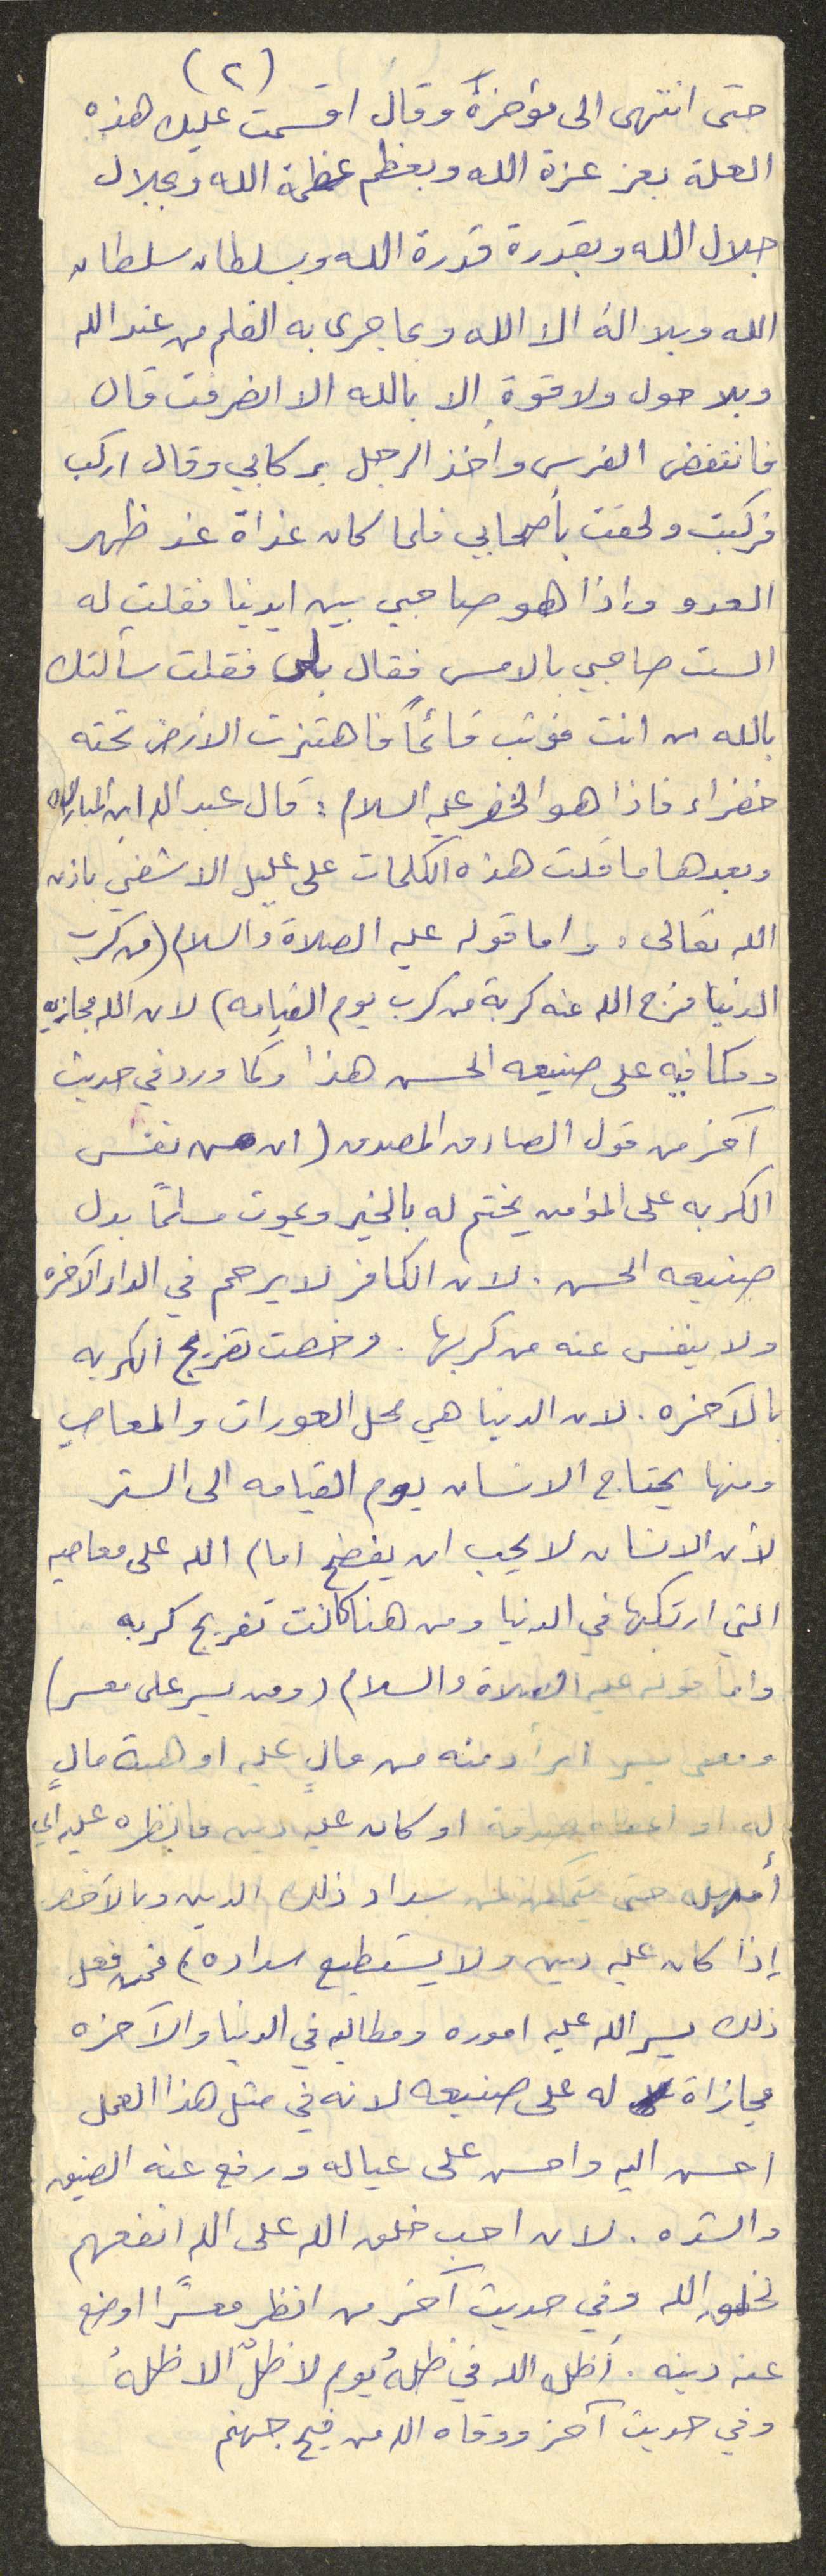 (٢)
حتى انتهى الى مؤخرة وقال اقسمت عليك هذه
العلة بعز عزة الله وبعظم عظمة الله وبجلال
جلال الله وبقدرة قدرة الله وبسلطان سلطان
الله وبلا اله الا الله وبما جرى به القلم من عند الله
وبلا حول ولا قوة إلا بالله الا انصرفت قال
فانتفض الفرس وأخذ الرجل بركابي وقال اركب
فركبت ولحقت بأصحابي فلما كان غداة غد ظهر
العدو واذا هو صاحبي بين ايدينا فقلت له
الست صاحبي بالامس فقال بلى فقلت سألتك
بالله من انت فوثب قائماً فاهتزت الارض تحته
خضراء فاذا هو الخضر عليه السلام : قال عبد الله ابن المبارك
وبعدها ما قلت هذه الكلمات على عليل الا شفي باذن
الله تعالى . واما قوله عليه الصلاة والسلام (من كرب
الدنيا فرج الله عنه كربة من كرب يوم القيامه) لان الله مجازيه
ومكافيه على صنيعه الحسن هذا وكما ورد في حديث
آخر من قول الصادق المصدوق (ان من نفس
الكربه على المؤامن يختم له بالخير ويموت مسلمًا بدل
صنيعه الحسن . لان الكافر لا يرحم في الدار الآخره
ولا ينفس عنه من كربها . وخصت تفريج الكربه
بالآخره . لان الدنيا هي محل العورات والمعاصي
ومنها يحتاج الانسان يوم القيامه الى الستر
لأن الانسان لا يحب ان يفضح امام الله على معاصيه
التي ارتكبها في الدنيا ومن هنا كانت تفريج كربه
واما قوله عليه الصلاة والسلام (ومن يسر على معسر)
ومعنى يسر ابرأ ذمته من مالٍ عليه او هبة مالٍ
له او اعطاه صدقة او كان عليه دين فانظره عليه اي
أمهله حتى يتمكن من سداد ذلك الدين وبالآخص
إذا كان عليه دين ولا يستطيع سداده) فمن فعل
ذلك يسر الله عليه اموره ومطالبه في الدنيا والآخره
مجازاة له على صنيعه لانه في مثل هذا العمل
احسن اليه واحسن على عياله ورفع عنه الضيق
والشده . لان احب خلق الله على الله انفعهم
لخلق الله وفي حديث آخر من انظر معسرًا اوضع
عنه دينه . أظله الله في ظلهُ يوم لا ظلٌ الا ظلهُ
وفي حديث آخر ووقاه الله من فيح جهنم